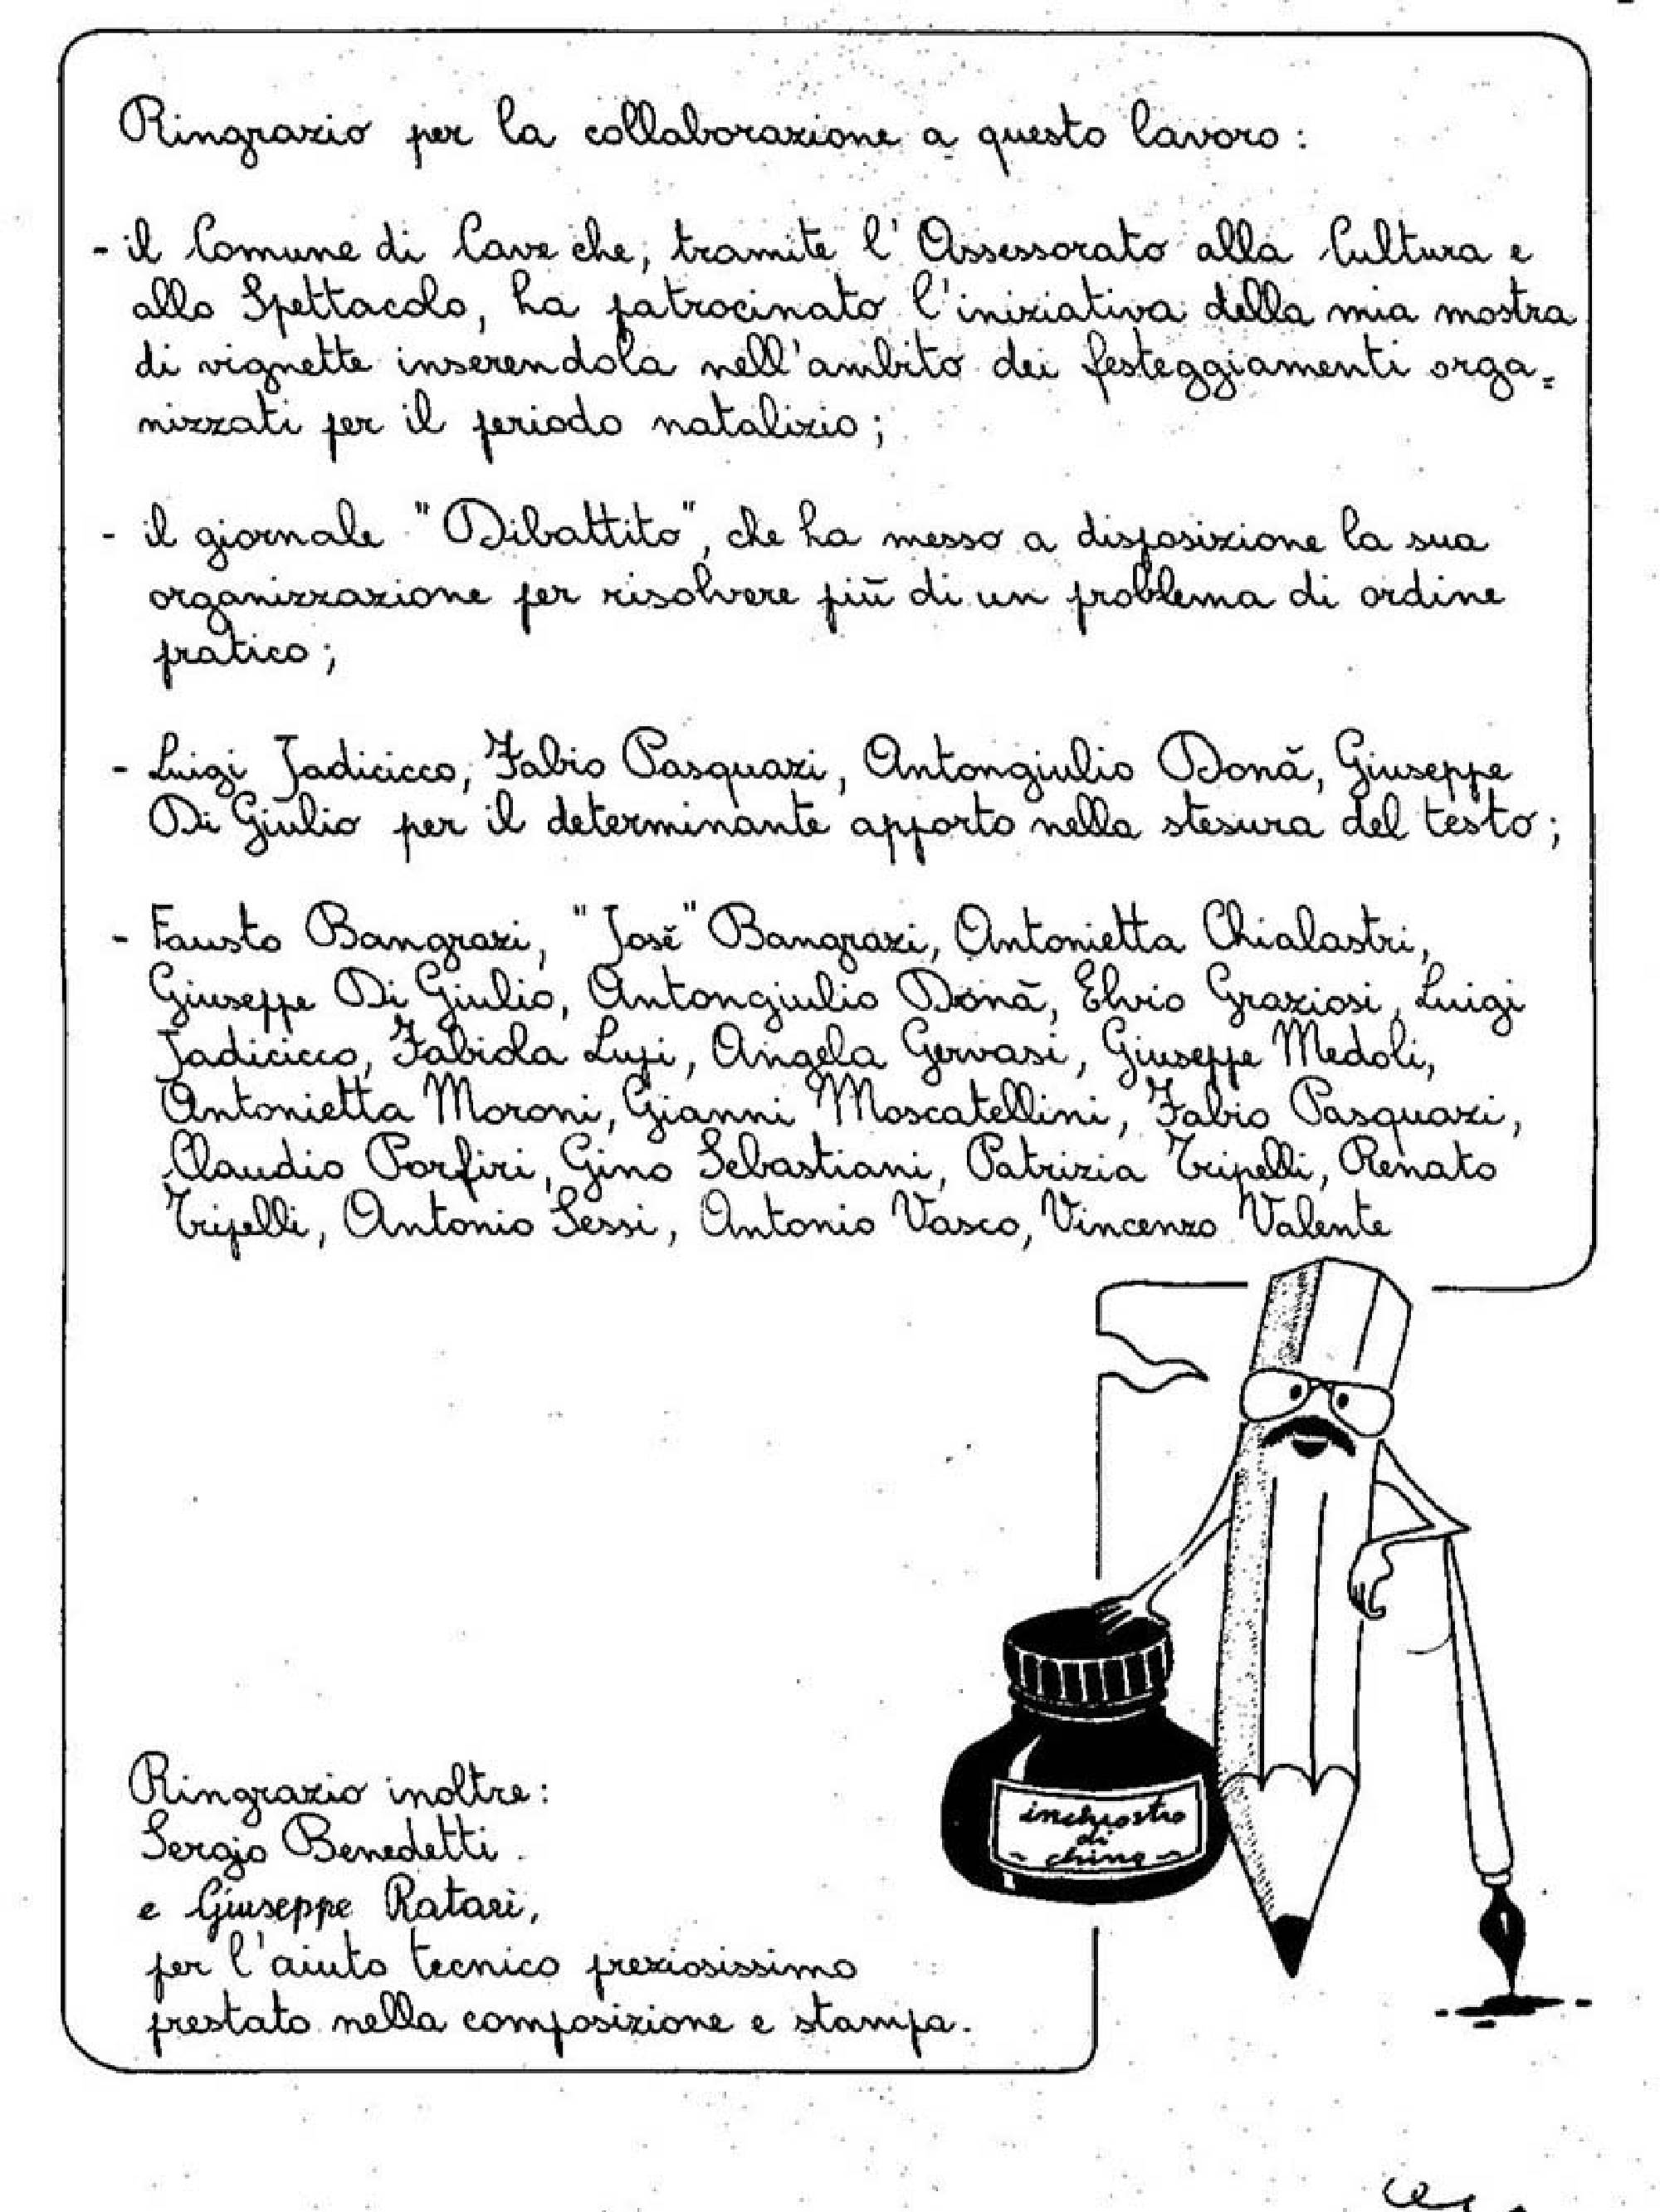 Ringrazio per la collaborazione a questo lavoro:
- il Comune di Cave che, tramite l'Assessorato alla Cultura e
allo Spettacolo, ha patrocinato l'iniziativa della mia mostra
di vignette inserendola nell'ambito dei festeggiamenti orga=
nizzati per il periodo natalizio;
- il giornale "Dibattito", che ha messo a disposizione la sua
organizzazione per risolvere più di un problema di ordine
pratico;
- Luigi Jadicicco, Fabio Pasquazi, Antongiulio Donà, Giuseppe
Di Giulio per il determinante apporto nella stesura del testo;
- Fausto Bangrazi, "José" Bangrazi, Antonietta Chialastri,
Giuseppe Di Giulio, Antongiulio Donà, Elvio Graziosi, Luigi
Jadicicco, Fabiola Lupi, Angela Gervasi, Giuseppe Medoli,
Antonietta Moroni, Gianni Moscatellini, Fabio Pasquazi,
Claudio Porfiri, Gino Sebastiani, Patrizia Tripelli, Renato
Tripelli, Antonio Sessi, Antonio Vasco, Vincenzo Valente
inchiostro
di
~ china ~
Ringrazio inoltre:
Sergio Benedetti
e Giuseppe Ratari,
per l'aiuto tecnico preziosissimo
prestato nella composizione e stampa.